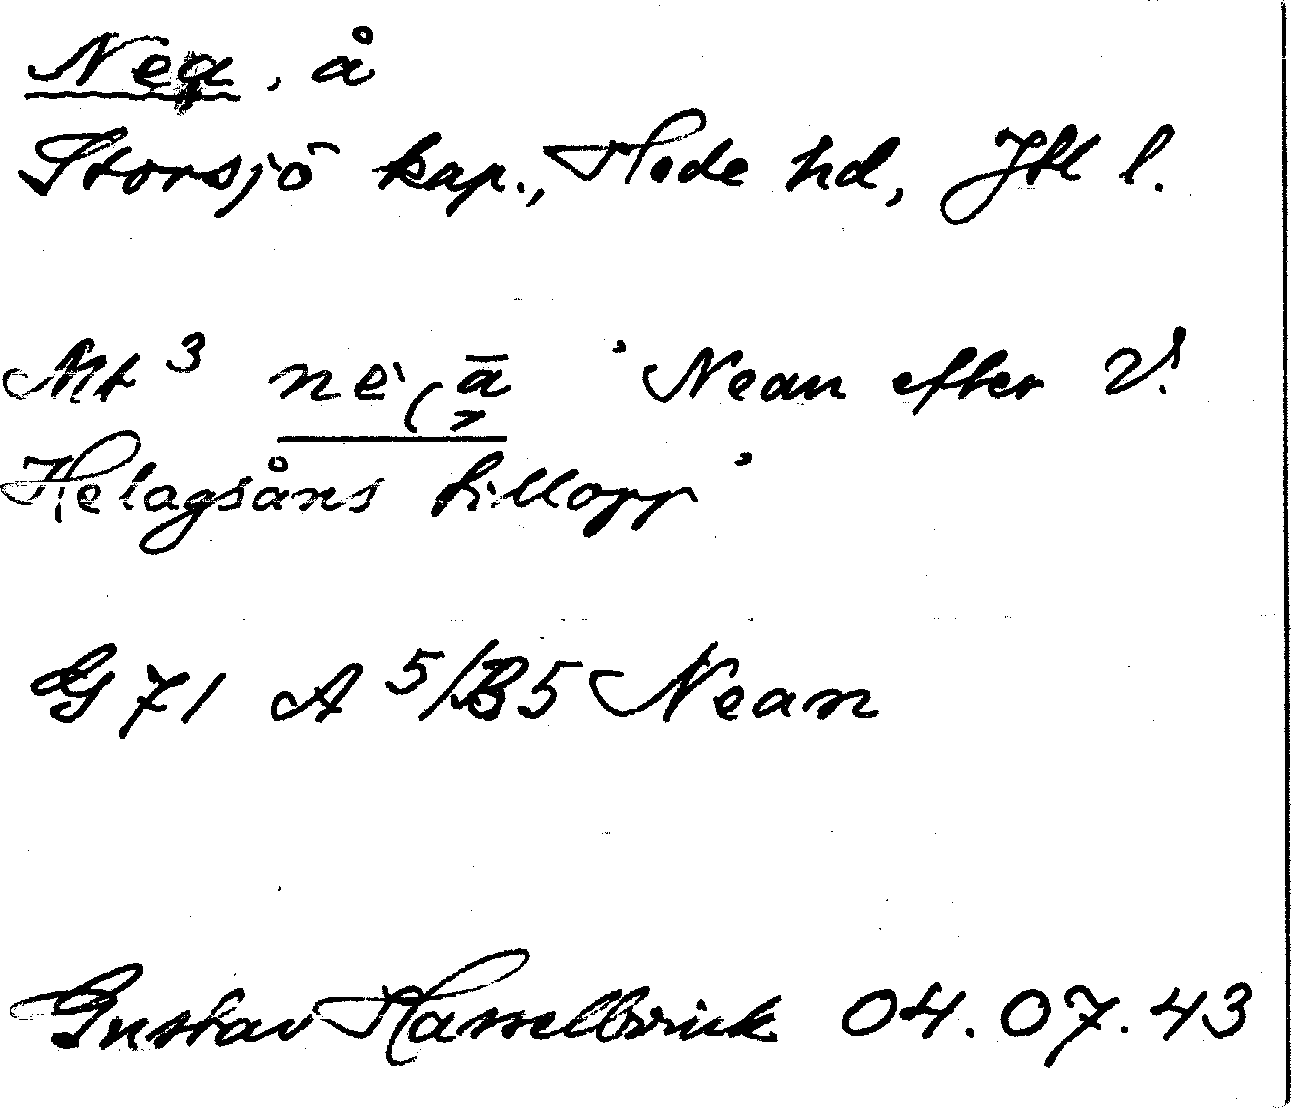 Nea, å
Storsjö kap., Hede hd, Jtl l.
Mt ³ ne`(ā 'Nean efter V.
Helagsåns tillopp'
G 71 A 5/B5 Nean
Gustav Hasselbrink 04.07.43